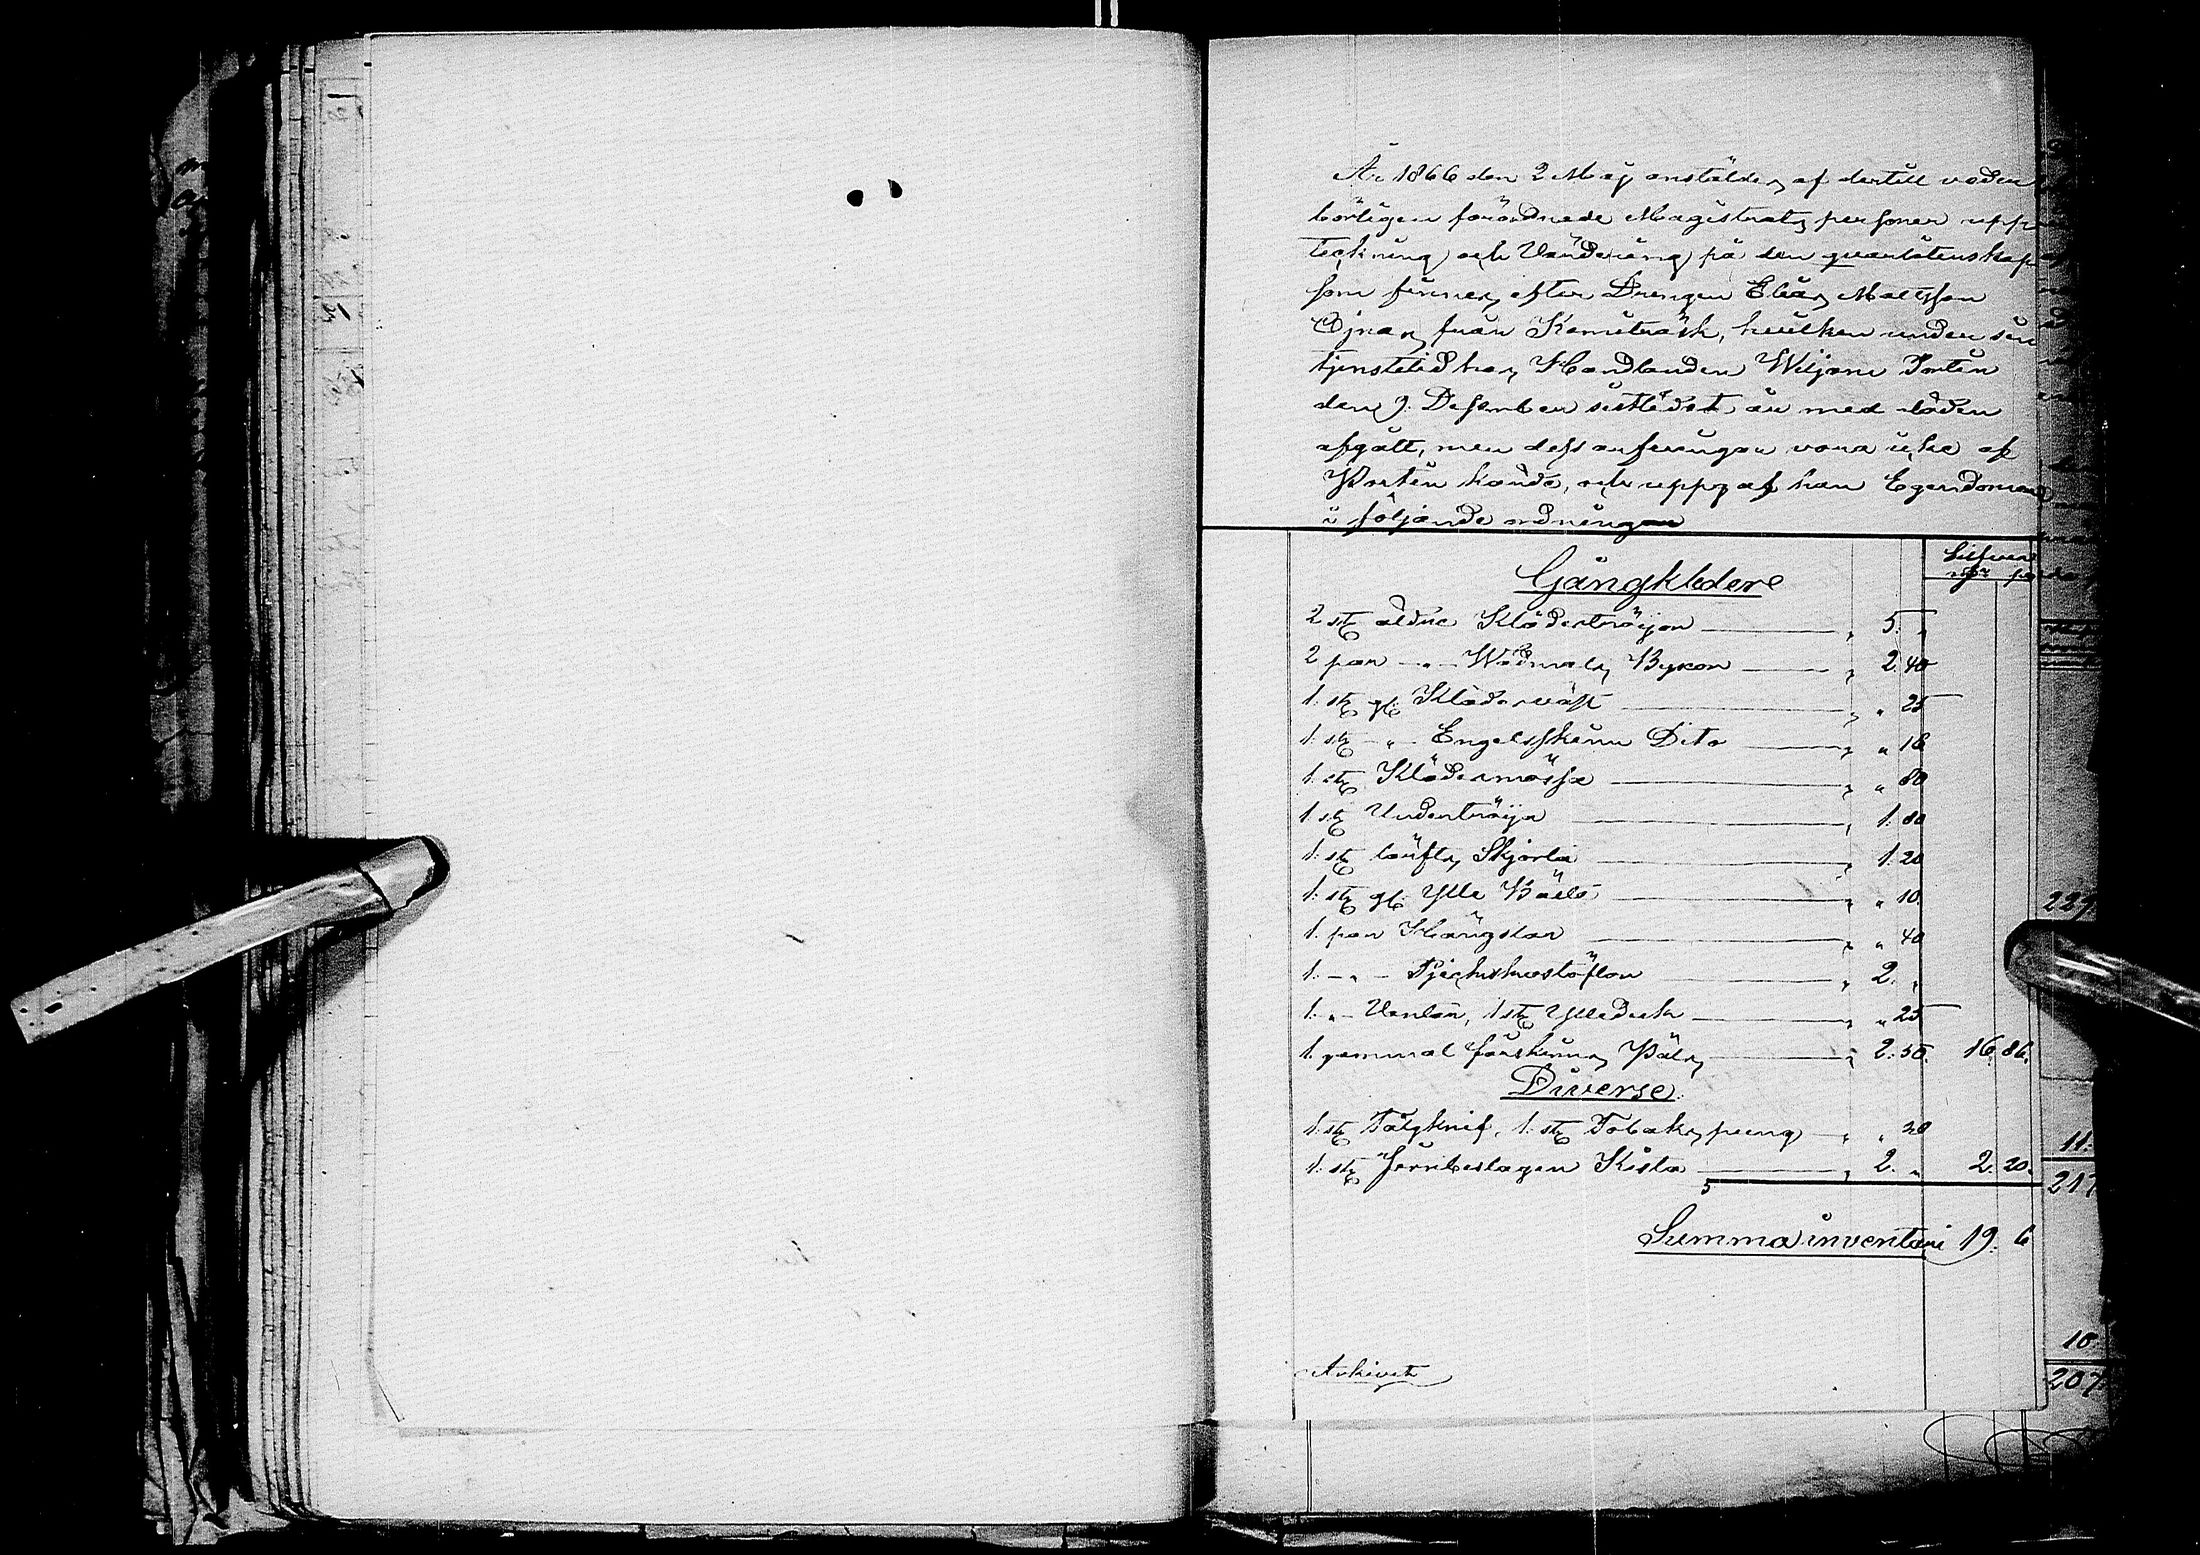 År 1866 den 2 Maj anstäldes af dertill veder
börligen förordnade Magistrats personer upp
teckning och Värdering på den qvarlåtenskap
som finnes efter Drengen Elias Mattsson
Ojnas från Kemiträsk, hvilken under sin
tjenstetid hos Handlanden Wiljam Portin
den 9. December sistledst är med döden
afgått, men dess arfvingar voro icke af
Portin kände, och uppgaf han Egendomen
i följande ordningen
Silfver
rub. pe
Gångkläder
2 st. äldre Klädeströijor " 5. "
2 par -"- Wadmals Byxor " 2. 40
1. st. gl. Klädesväst " " 25
1. st. -"- Engelsskinn Dito " " 16
1. st. Klädesmössa " " 80
1 st. Undertröija " 1. 80
1. st. lärfts Skjorta " 1. 20
1. st. gl. Ylle Bälte " " 10.
1. par Hängslar " " 40
1. -"- stöflor " 2. "
1. "- Vantar, 1 st. Ylleduk " " 25
1. gammal fårskinns Päls " 2. 50. 16. 86.
Diverse.
1. st. Tälgknif, 1. st. Tobaks pung " " 20
1. st. Jernbeslagen Kista " 2. " 2. 20.
Summa inventari 19. 6
Arkivet
227
11.
217
10
207